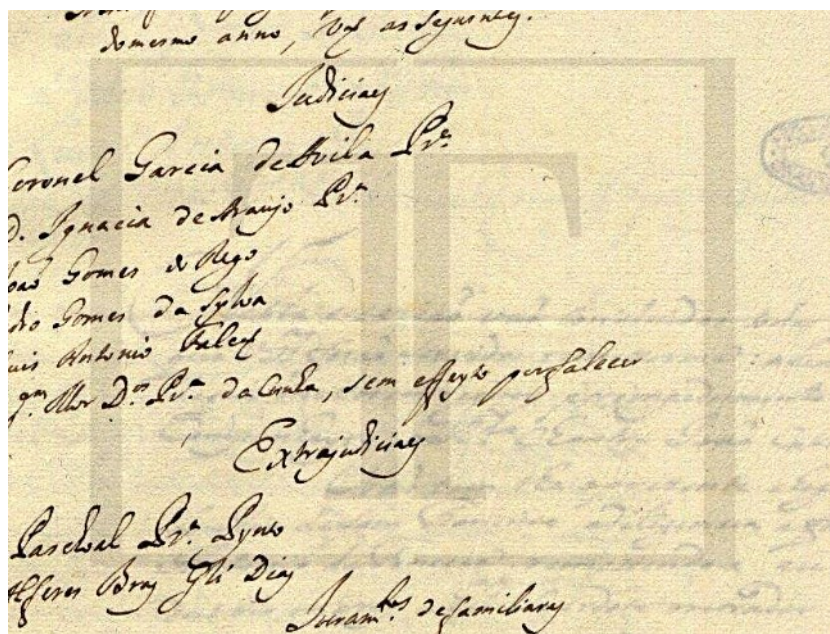 do mesmo anno, as seguintes.
Judiciaes
Coronel Garcia de Avila Pr.ª
D. Ignacia de Araujo Pr.ª
Gomes do Rego
Gomes da Sylva
Antonio
Mor D.ºˢ Pr.ª da Cunha, sem effeyto por falecer
Extrajudiciaes
Paschoal Pr.ª Pynto
Alferes Bras Glz Dias
Juram.ᵗᵒˢ de familiares